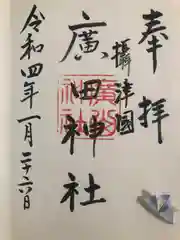 奉拝
攝津國
廣田神社
令和四年一月二十六日
廣田
神社